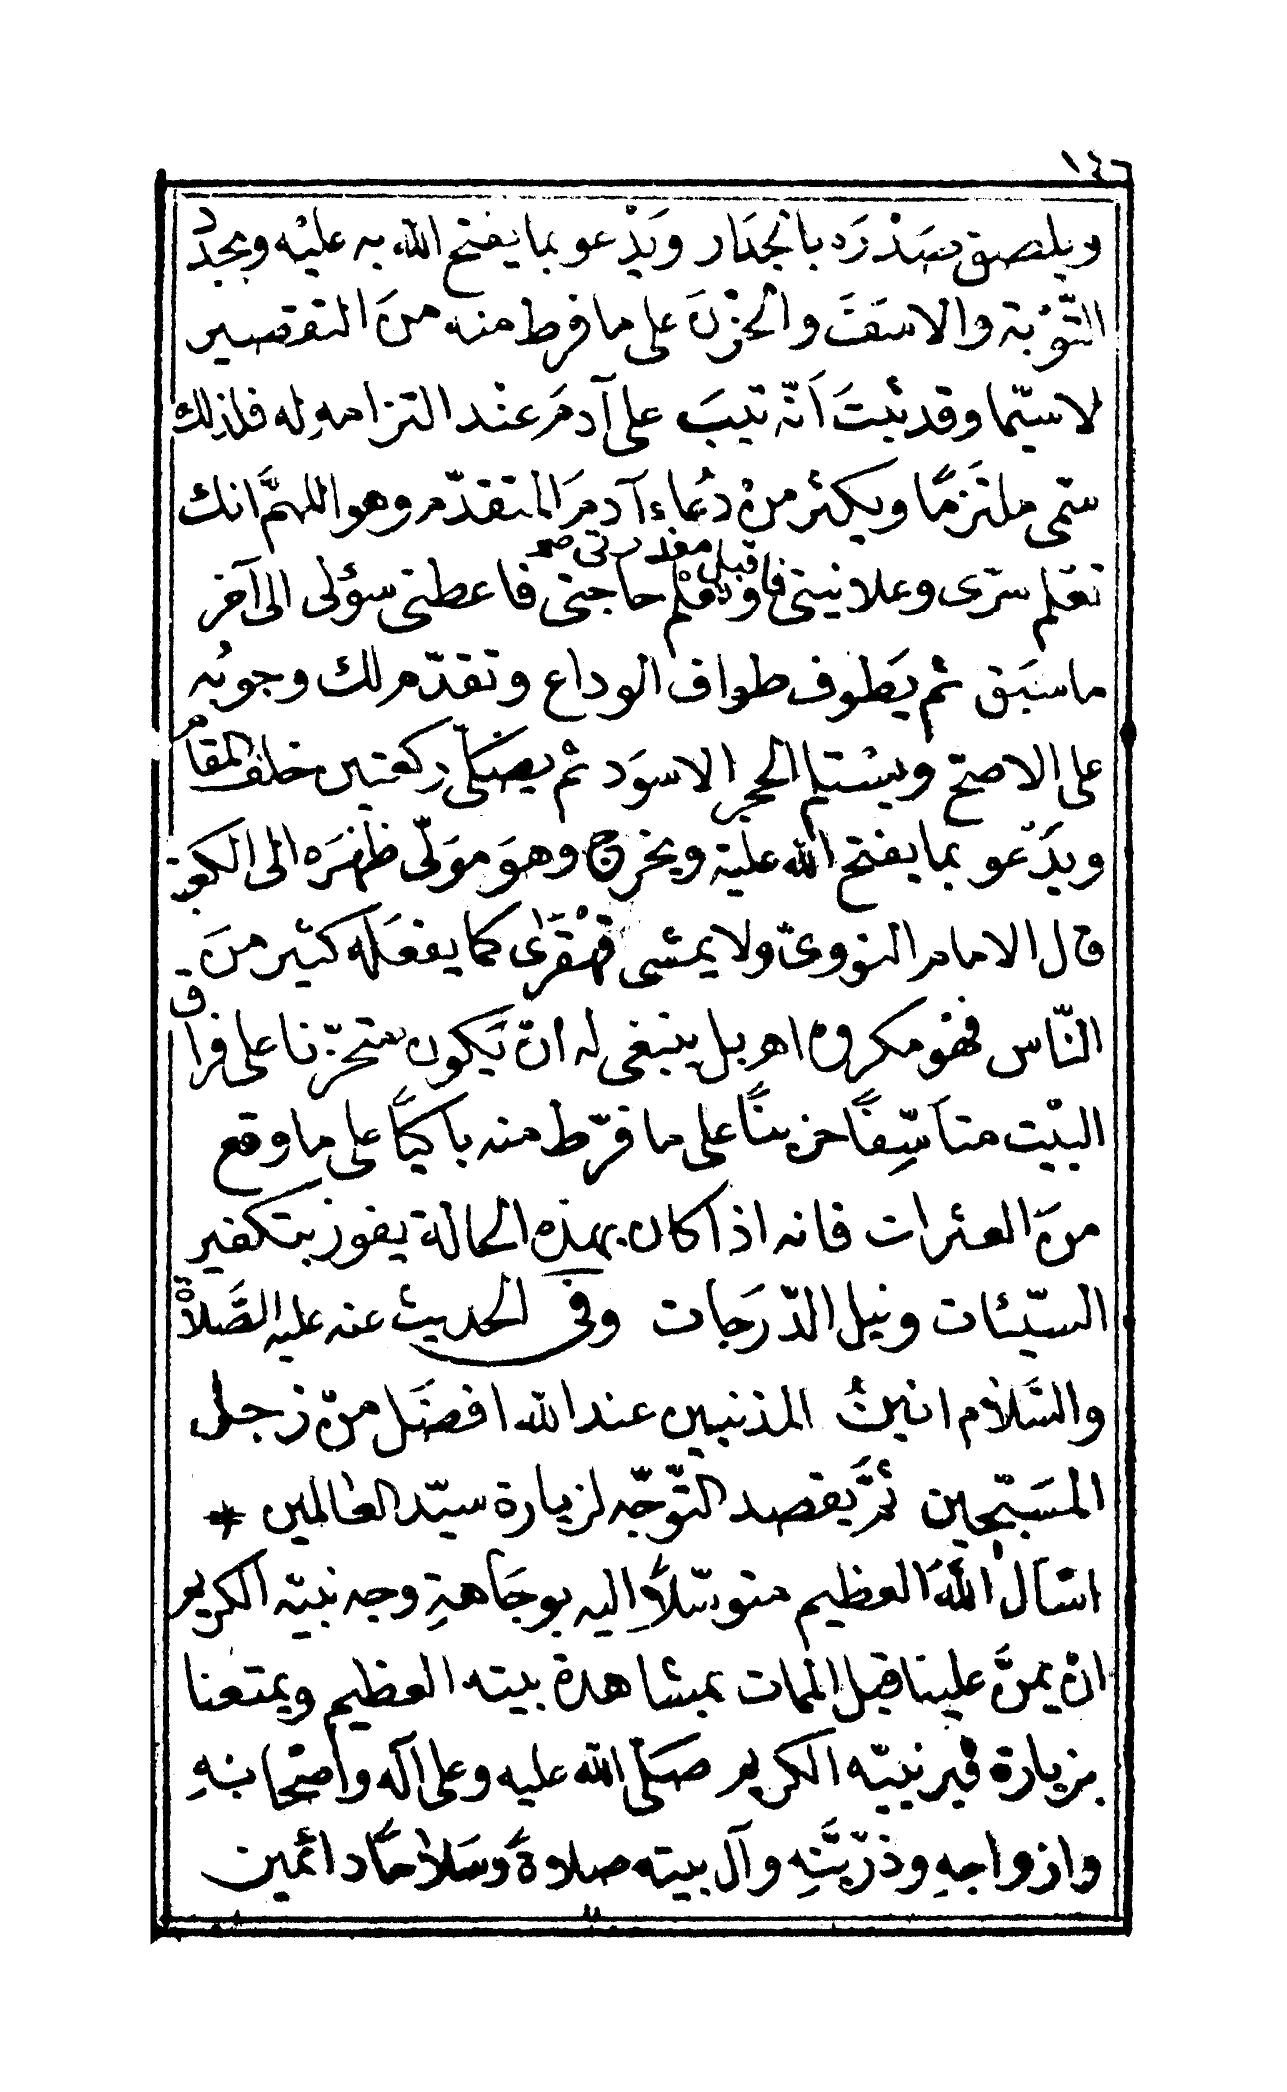 ١٤٦
ويلصق صَدْرَه بالجدَار ويَدْعو بما يفتح الله به عليْه ويجدّد
التّوْبة والاسَفَ والحُزْنَ على ما فرط منه منَ التقصير
لاسيّما وقد ثبتَ اَنّه تيبَ على آدمَ عنْد التزامهِ له فلذلك
سمّى ملتَزمًا ويكثر منْ دُعاء آدمَ المتقدّم وهو اللهمَّ انك
تعْلم سرّى وعلانيتى فاقبل معذرتى صح
وتعْلم حاجتى فاعطنى سؤلى الى آخر
ما سَبَق ثم يَطوف طواف الوداع وتقدّم لك وجوبُه
على الاصحّ ويسْتلم الحجر الاسوَد ثم يصَلّى ركعتين خلف المقام
ويدَعو بما يفتح الله عليه ويخرج وهوَ موَلّى ظهْرَه الى الكعبة
قال الامام النووىّ ولا يمشى قهْقرَى كما يفعَله كثير منَ
النّاس فهو مكروه اهـ بل ينبغى له انْ يَكون متحزّنا على فراق
البيْت متأسّفًا حزينًا على ما فرّط منه باكيًا على ما وقع
منَ العثرات فانه اذا كان بهذه الحالة يفوز بتكفير
السيّئات ونيل الدّرَجات وفى الحديث عنه عليه الصَّلاةُ
والسَّلام انينُ المذنبين عند الله افضَل منْ زجل
المسَبّحين ثمَّ يَقصد التّوَجّه لزيارة سيّد العالمين *
اسْأل اللهَ العظيم متوسّلاً اليه بوجَاهةِ وجه نبيّه الكريم
انْ يمنَّ علينا قبل الممات بمشاهدة بيته العظيم ويمتعنا
بزيارة قبر نبيّه الكريم صَلّى الله عليه وعلى آله واصْحابهِ
وازواجهِ وذرّيّتهِ وآل بيته صلاةً وسَلامًا دائمين